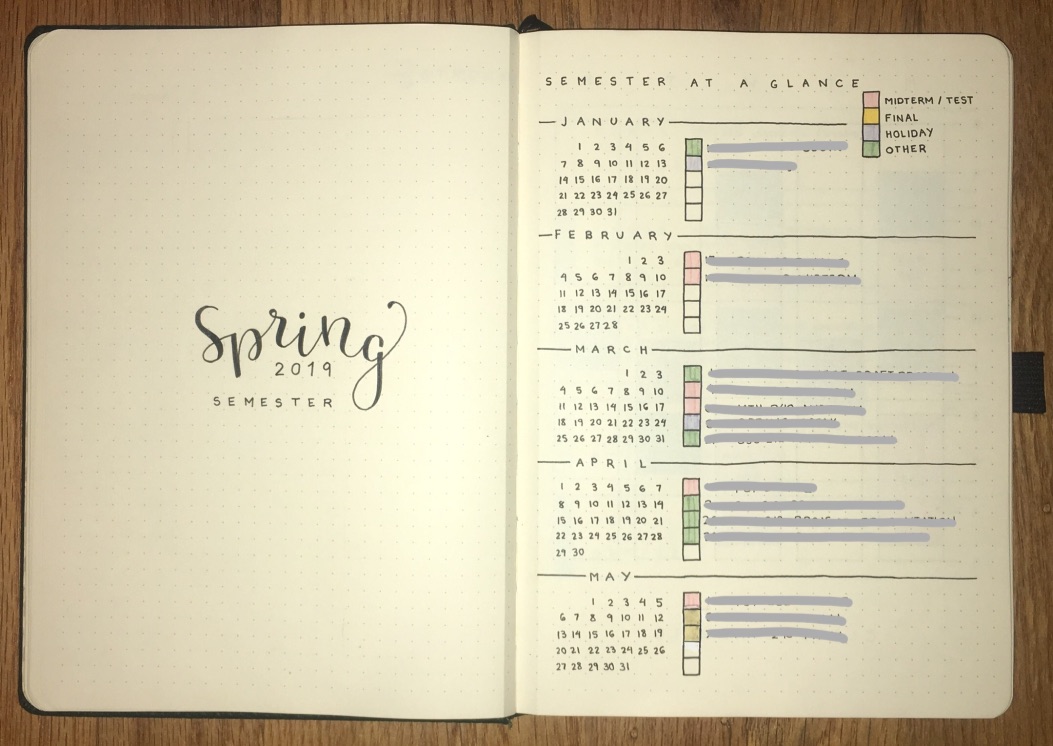 Spring
2019
SEMESTER
SEMESTER AT A GLANCE
MIDTERM / TEST
FINAL
HOLIDAY
OTHER
JANUARY
1 2 3 4 5 6
7 8 9 10 11 12 13
14 15 16 17 18 19 20
21 22 23 24 25 26 27
28 29 30 31
FEBRUARY
1 2 3
4 5 6 7 8 9 10
11 12 13 14 15 16 17
18 19 20 21 22 23 24
25 26 27 28
MARCH
1 2 3
4 5 6 7 8 9 10
11 12 13 14 15 16 17
18 19 20 21 22 23 24
25 26 27 28 29 30 31
APRIL
1 2 3 4 5 6 7
8 9 10 11 12 13 14
15 16 17 18 19 20 21
22 23 24 25 26 27 28
29 30
MAY
1 2 3 4 5
6 7 8 9 10 11 12
13 14 15 16 17 18 19
20 21 22 23 24 25 26
27 28 29 30 31